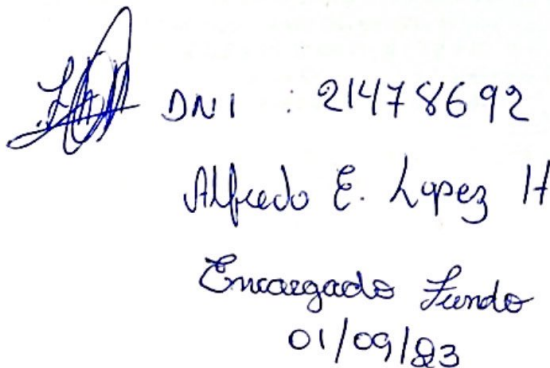 DNI : 21478692
Alfredo E. Lopez H
Encargado Fundo
01/09/23